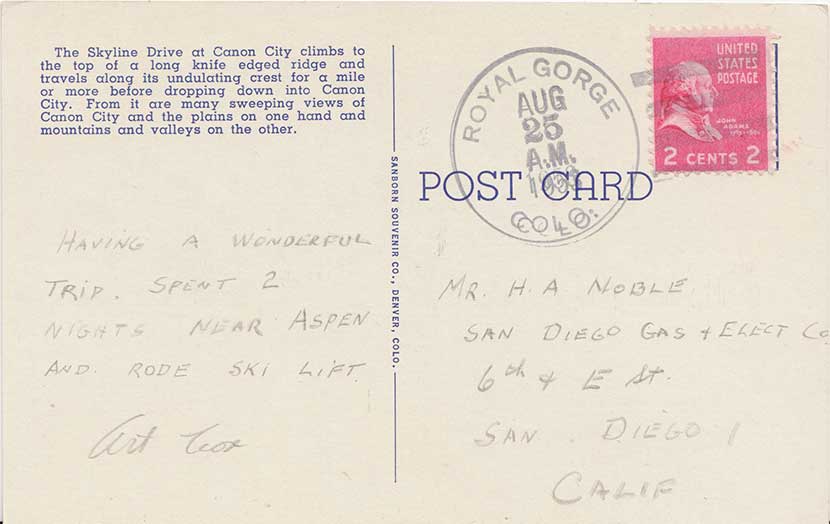 The Skyline Drive at Canon City climbs to
the top of a long knife edged ridge and
travels along its undulating crest for a mile
or more before dropping down into Canon
City. From it are many sweeping views of
Canon City and the plains on one hand and
mountains and valleys on the other.
HAVING A WONDERFUL
TRIP. SPENT 2
NIGHTS NEAR ASPEN
AND RODE SKI LIFT
Art Cox
SANBORN SOUVENIR CO., DENVER, COLO.
ROYAL GORGE
AUG
25
A.M.
COLO.
UNITED
STATES
POSTAGE
JOHN
ADAMS
2 CENTS 2
POST CARD
MR. H. A NOBLE
SAN DIEGO GAS & ELECT Co
6th & E St.
SAN DIEGO 1
CALIF